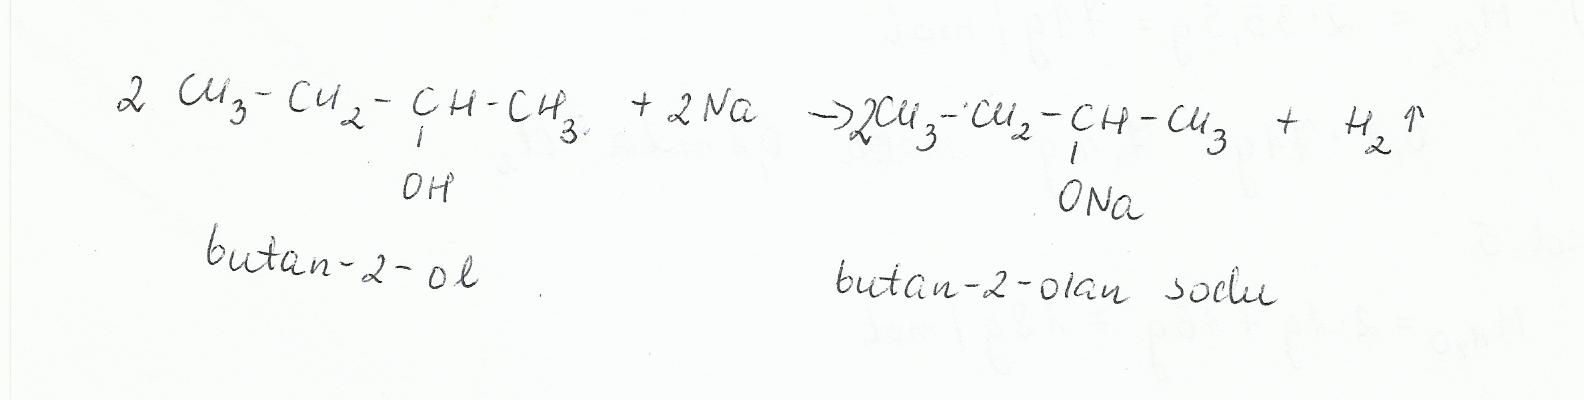 2 CH3-CH2-CH-CH3 + 2Na →2CH3-CH2-CH-CH3 + H2↑
OH ONa
butan-2-ol butan-2-olan sodu